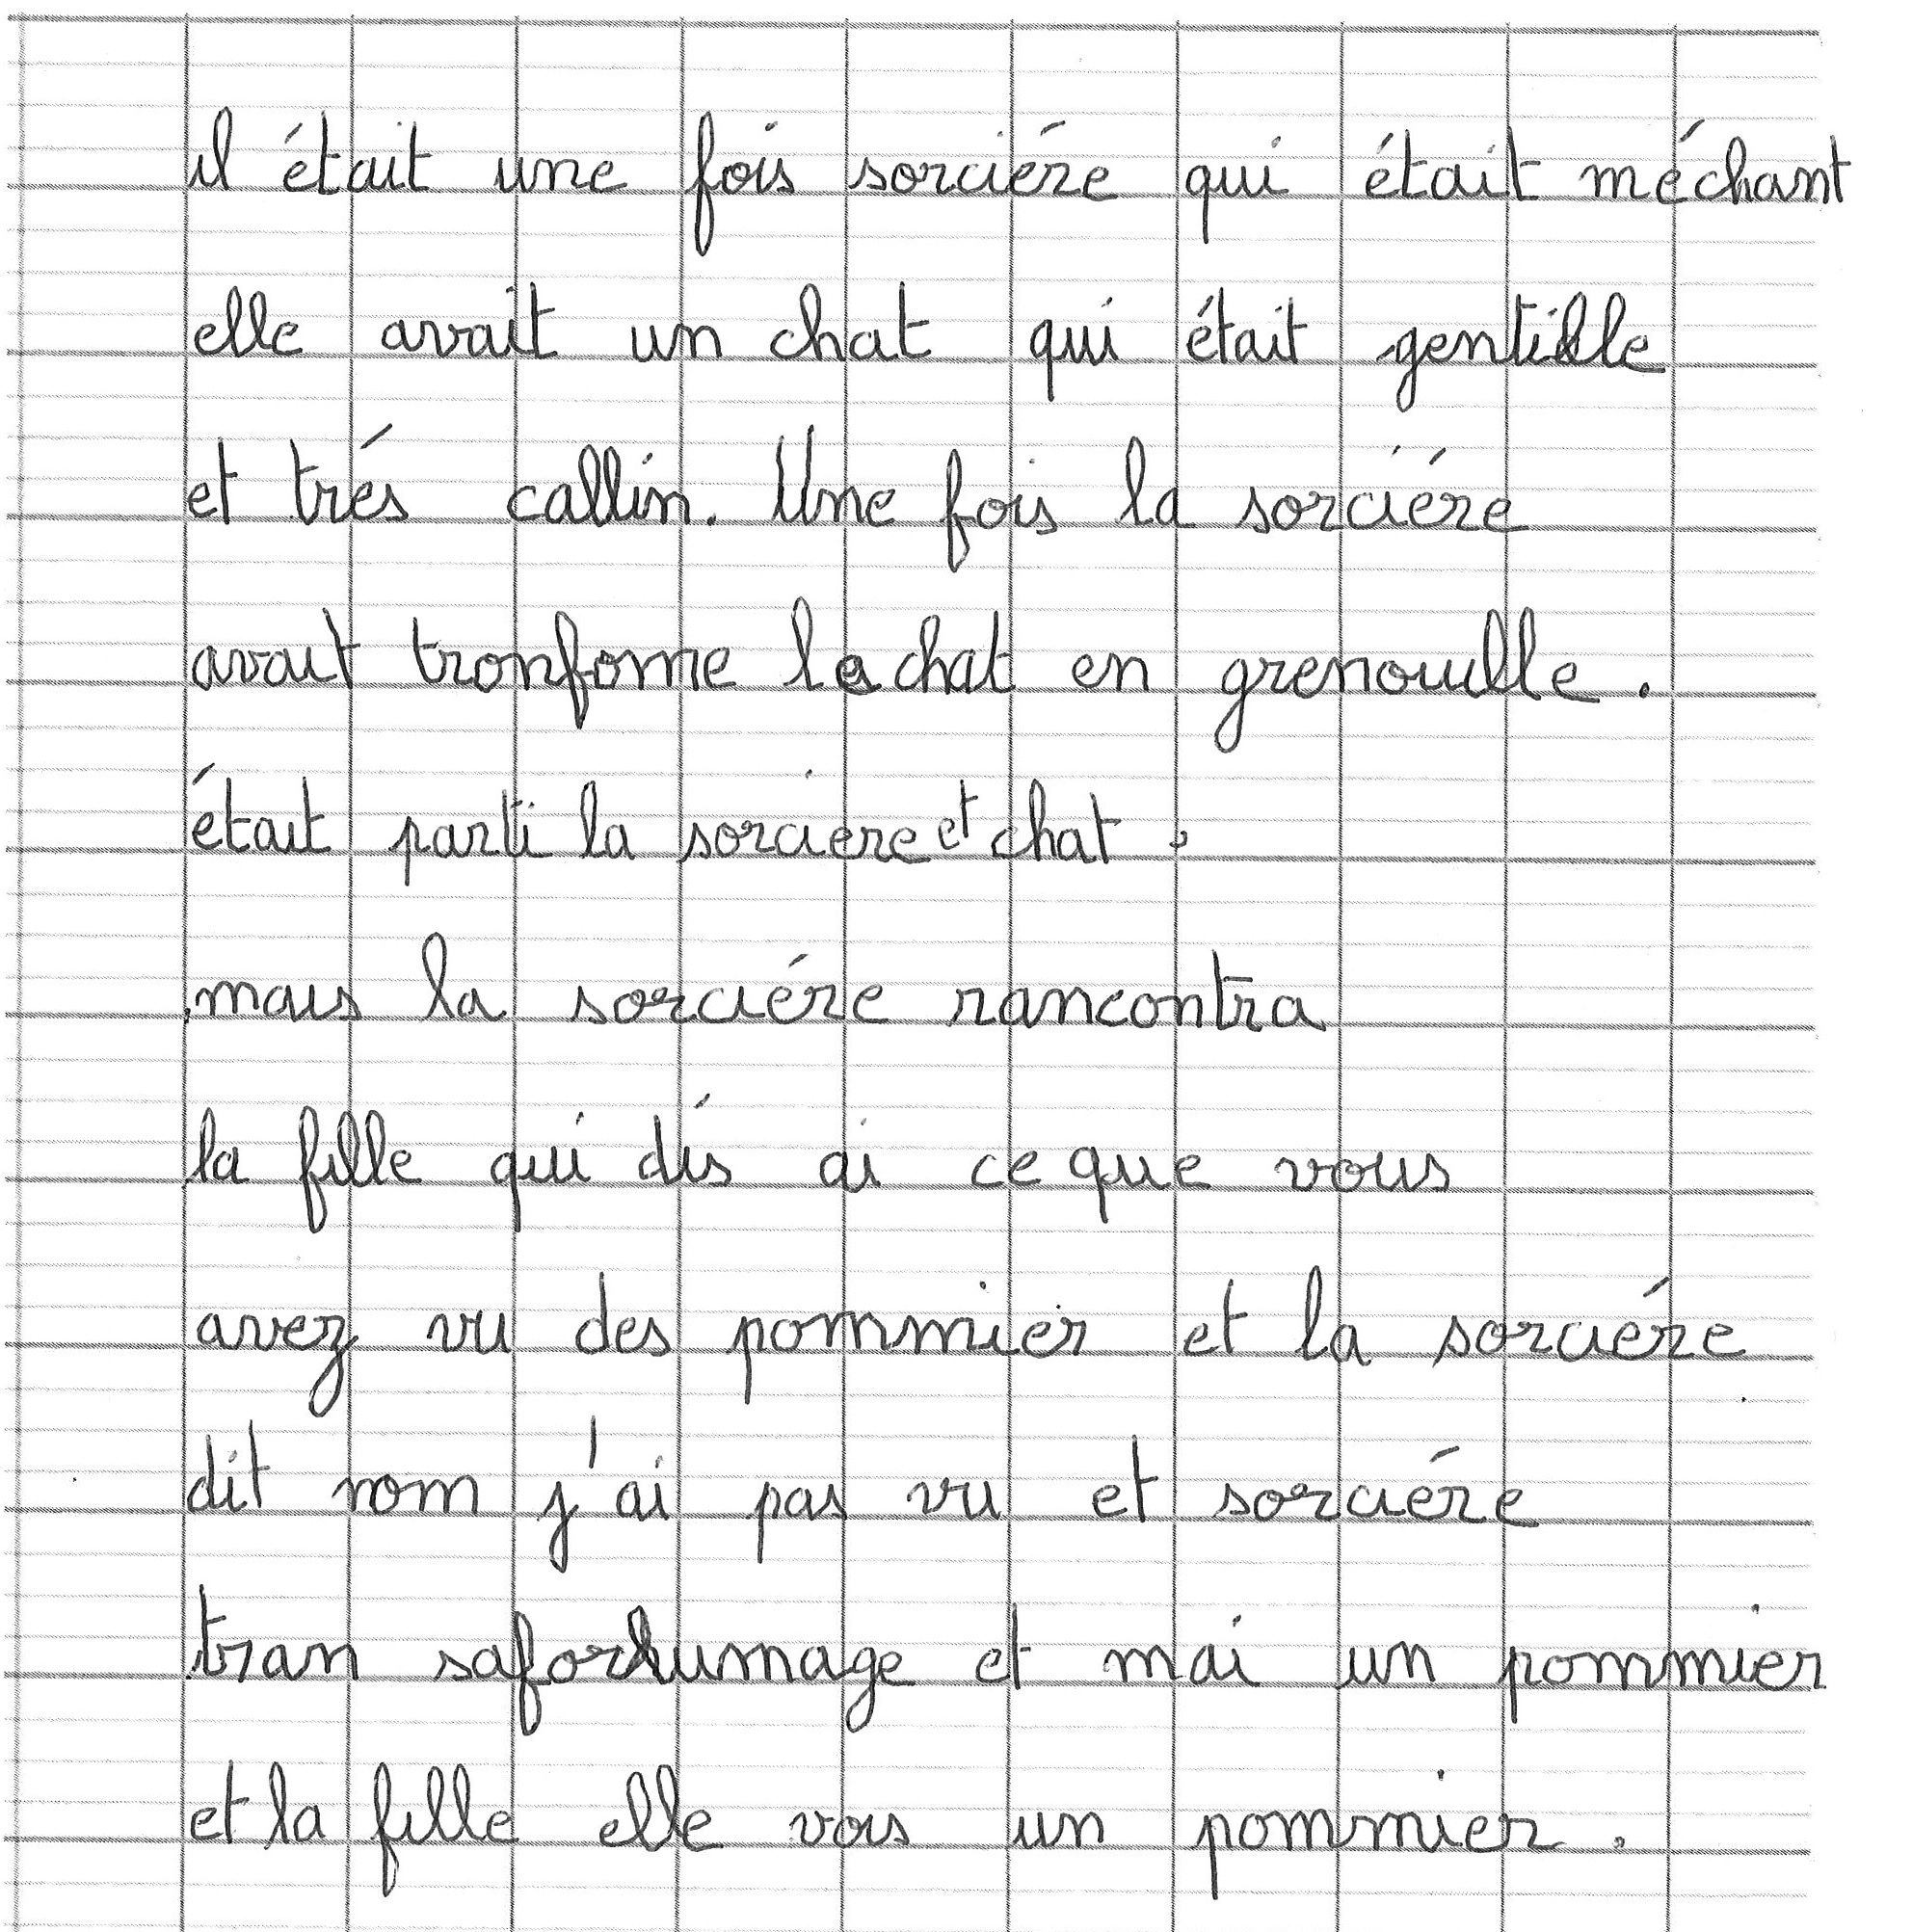 il était une fois sorciére qui était méchant
elle avait un chat qui était gentille
et trés callin. Une fois la sorciére
avait tronfome le chat en grenouille.
était parti la sorciere et chat.
mais la sorciére rancontra
la fille qui dis ai ce que vous
avez vu des pommier et la sorciére
dit nom j'ai pas vu et sorciére
tran saforlumage et mai un pommier
et la fille elle vois un pommier.